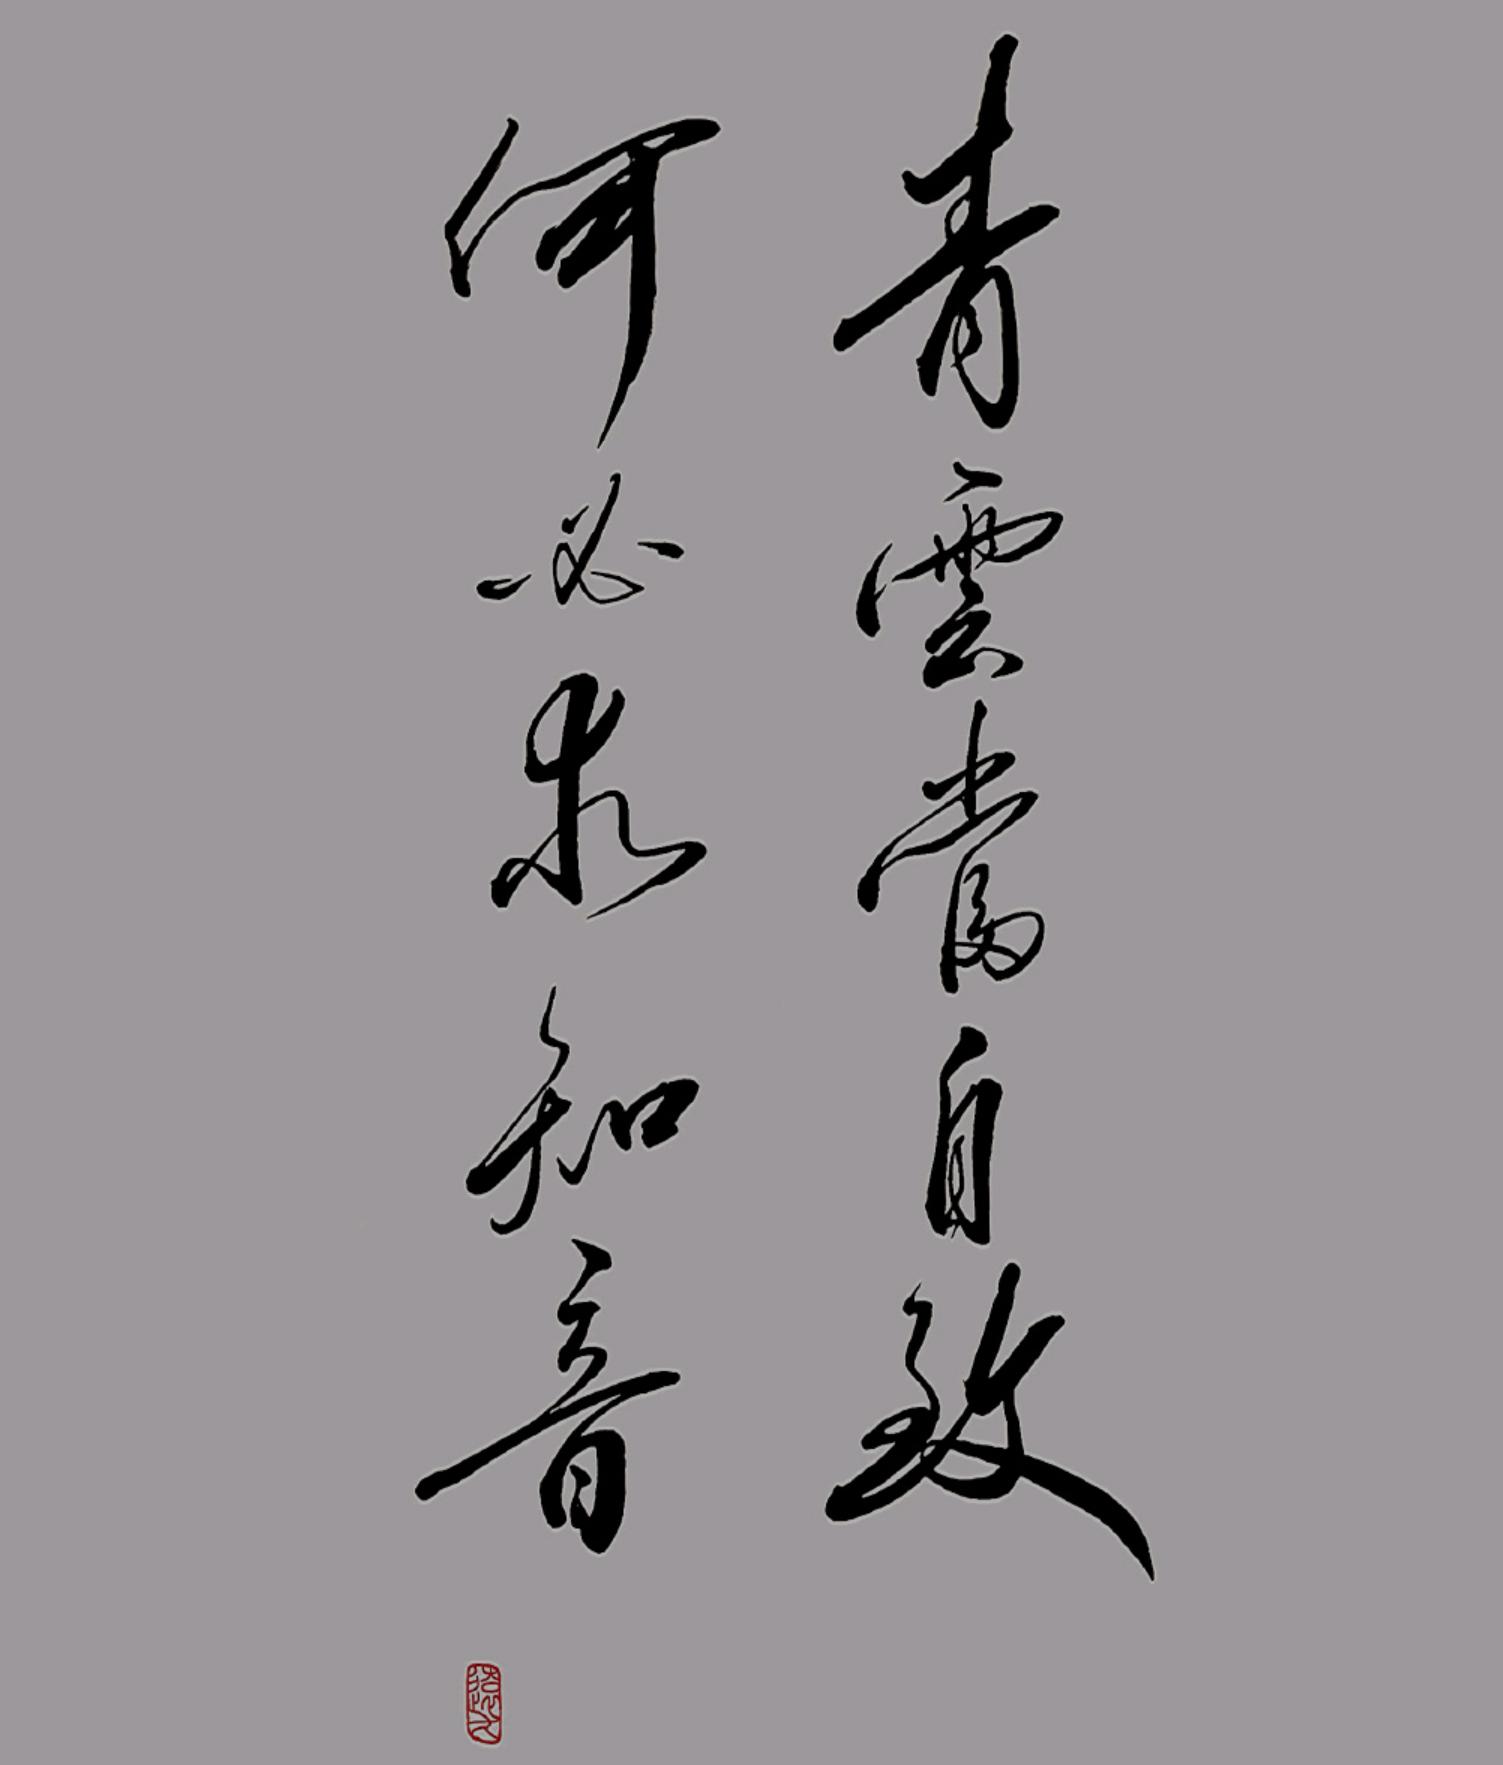 青雲當自致
何必求知音